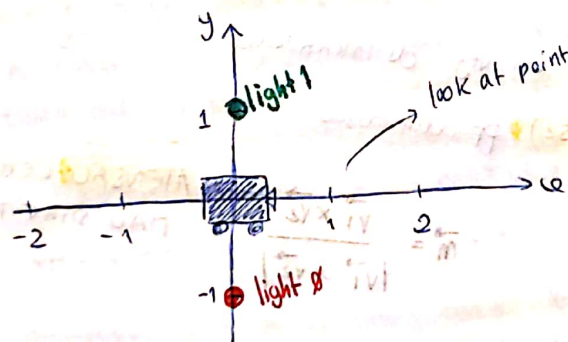 y
light 1
1
look at point
x
-2 -1 1 2
-1 light 0